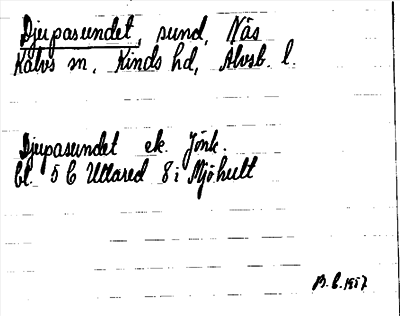 Djupasundet, sund, Näs
Kalvs sn, Kinds hd, Älvsb. l.
Djupasundet ek. Jönk.
bl. 5 C Uttared 8 i Mjöhult
B. E. 1957